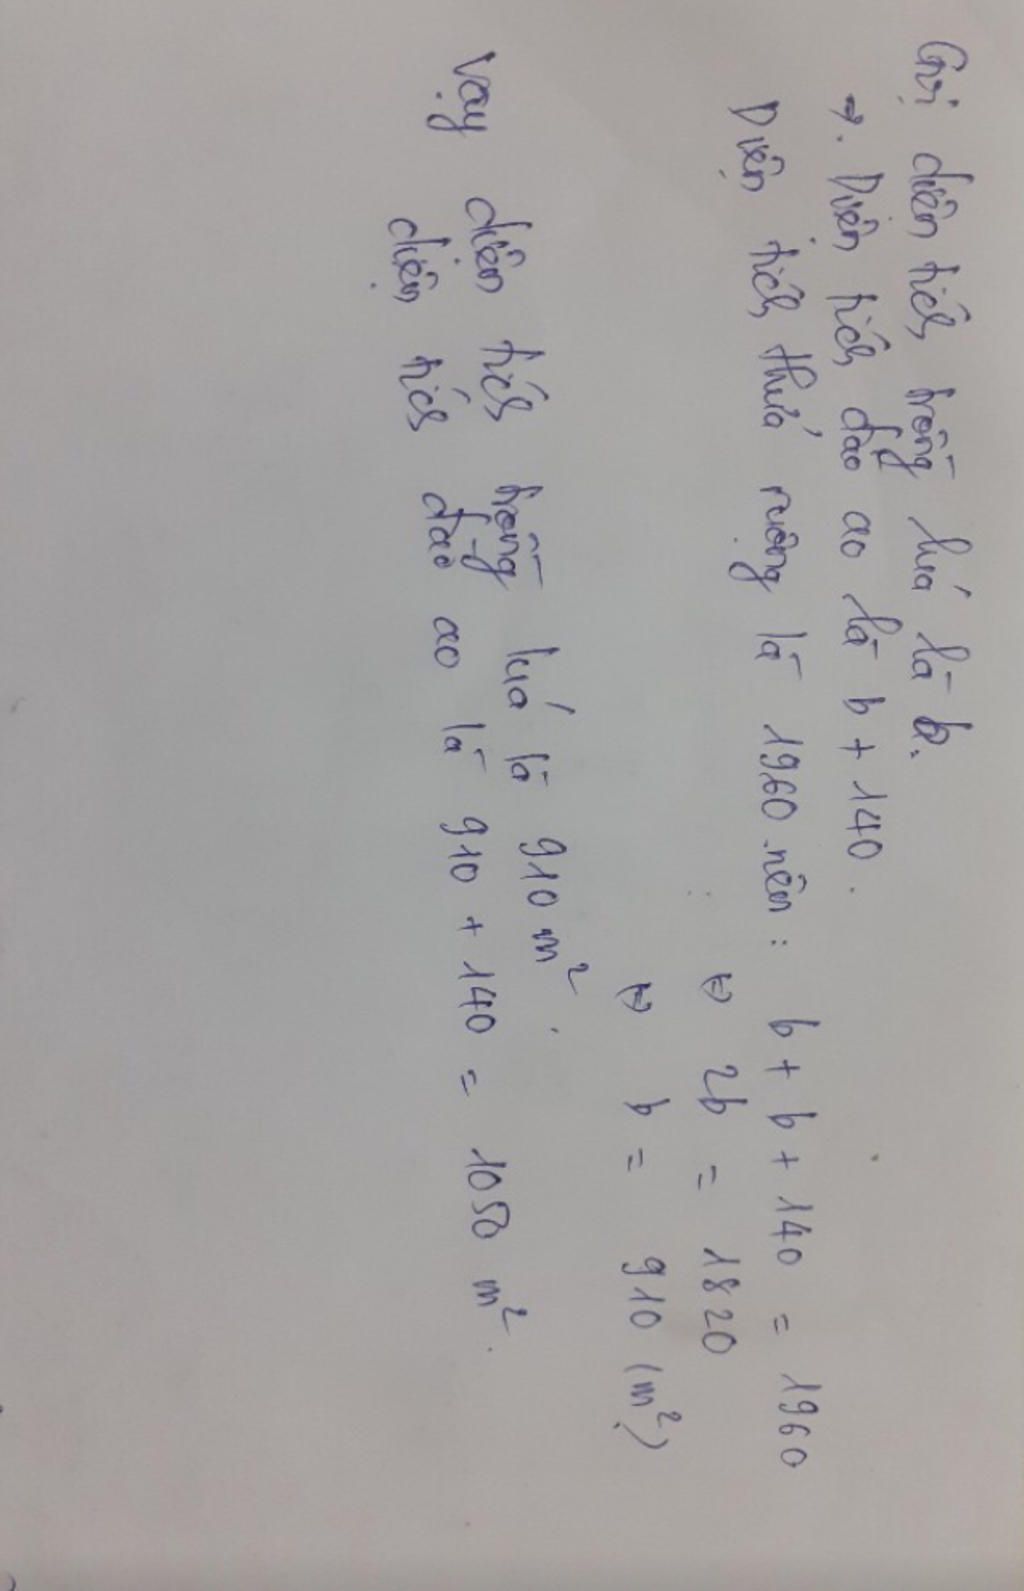 Gọi diện tích trồng lúa là b.
→. Diện tích đào ao là b + 140.
Diện tích thửa ruộng là 1960 nên : b + b + 140 = 1960
⇔ 2b = 1820
⇔ b = 910 (m²)
Vậy diện tích trồng lúa là 910 m².
diện tích đào ao là 910 + 140 = 1050 m².